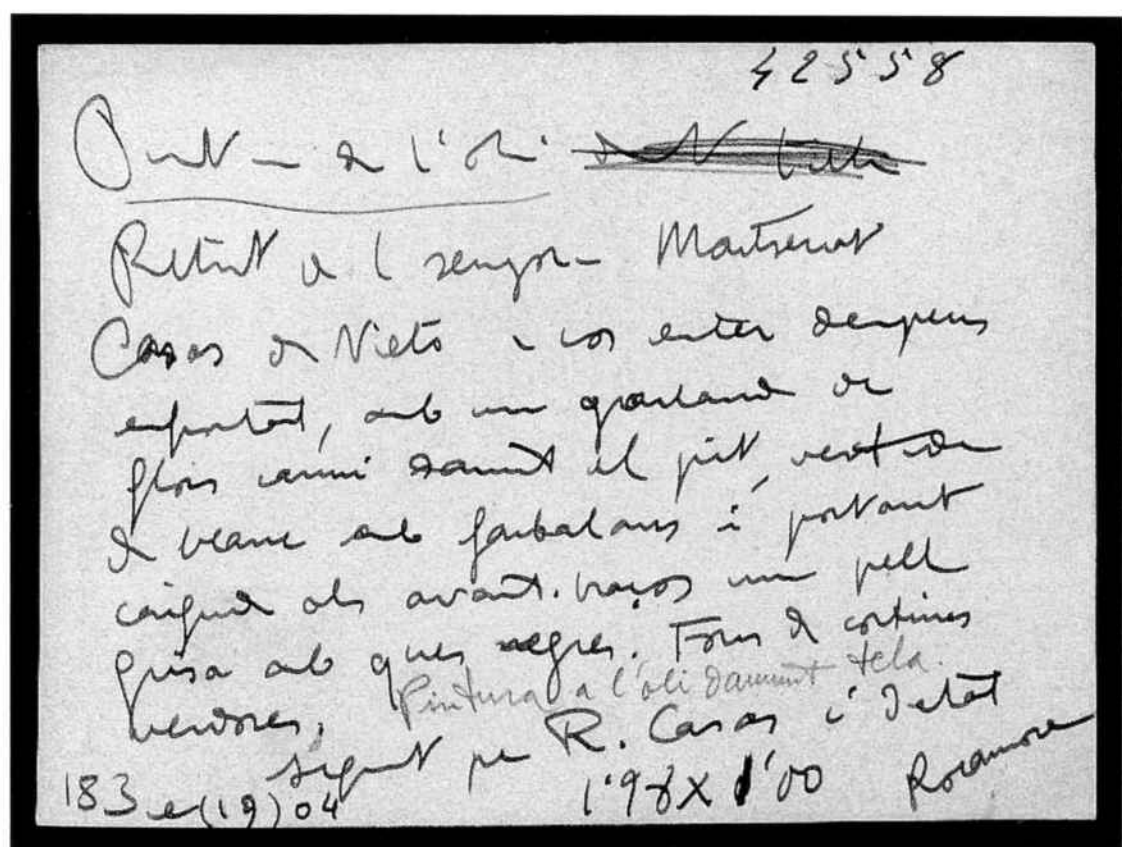 42558
Pintura a l'oli
Retrat de la senyora Montserrat
Casas de Nieto a cos enter dempeus
escotat, amb una garlanda de
flors carmí damunt el pit, vestida
de blanc amb farbalans i portant
caigude als avant-braços una pell
grisa amb ques negres. Fons de cortines
verdoses. Pintura a l'oli damunt tela.
Signat per R. Casas i datat
183 e(19)04 1'98 X 1'00 Rocamora